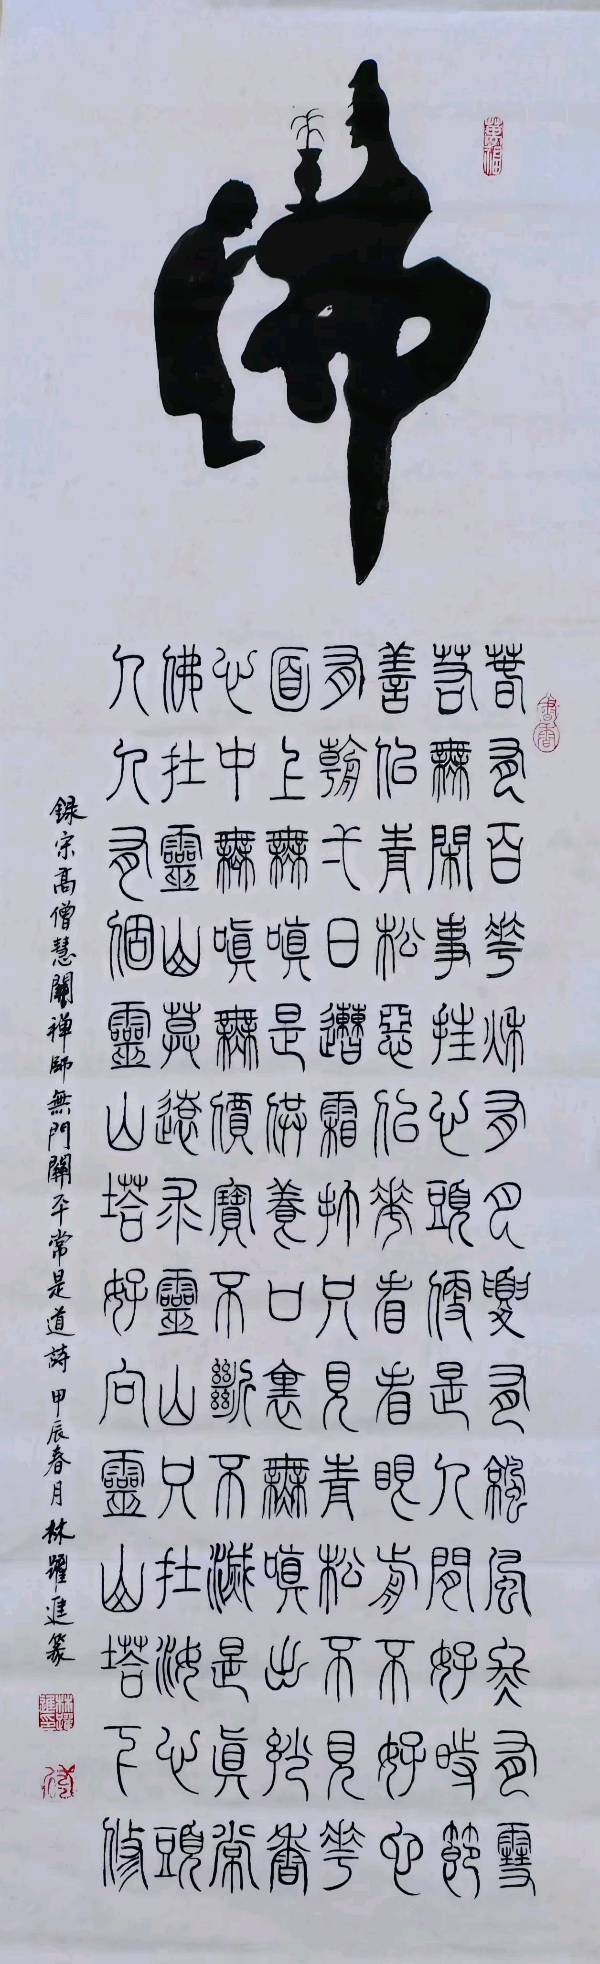 佛
萬福
書香
春有百花秋有月夏有涼風冬有雪
若無閑事挂心頭便是人間好時節
善似青松惡似花看看眼前不如它
有朝一日遭霜打只見青松不見花
面上無嗔是供養口裏無嗔出妙香
心中無嗔無價寶不斷不滅是真常
佛在靈山莫遠求靈山只在汝心頭
人人有個靈山塔好向靈山塔下修
錄宗高僧慧開禪師無門關平常是道詩 甲辰春月 林躍進篆
林躍進印